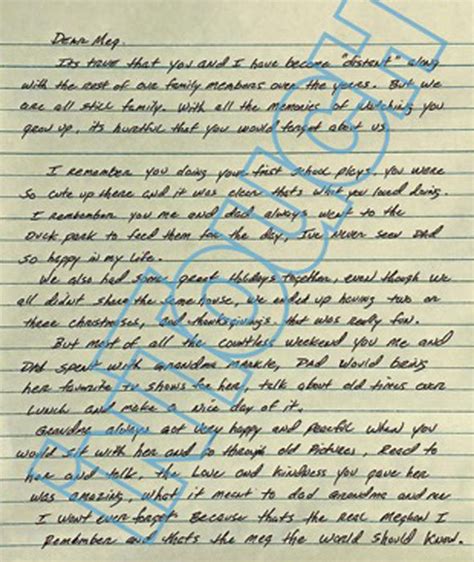 Dear Meg.
Its true that you and I have become "distant" along
with the rest of our family members over the years. But we
are all still family. With all the memories of watching you
grow up, its hurtful that you would forget about us.
I remember you doing your first school plays, you were
so cute up there and it was clear thats what you loved doing.
I remember you me and dad always went to the
Duck park to feed them for the day, Ive never seen Dad
so happy in my life.
We also had some great Holidays together, even though we
all didnt share the same house, we ended up having two or
three christmases, and thanksgivings. that was really fun.
But most of all the countless weekend you me and
Dad spent with Grandma markle, Dad would bring
her favorite tv shows for her, talk about old times over
Lunch and make a nice day of it.
Grandma always got very happy and peaceful when you
would sit with her and go through old Pictures, Read to
her and talk, the Love and Kindness you gave her
was amazing, what it meant to dad Grandma and me
I wont ever forget Because thats the real Meghan I
Remember and thats the meg the world should know.
InTouch